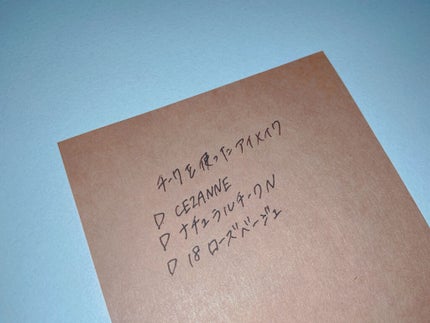 チークを使ったアイメイク
▷ CEZANNE
▷ ナチュラルチークN
▷ 18 ローズベージュ